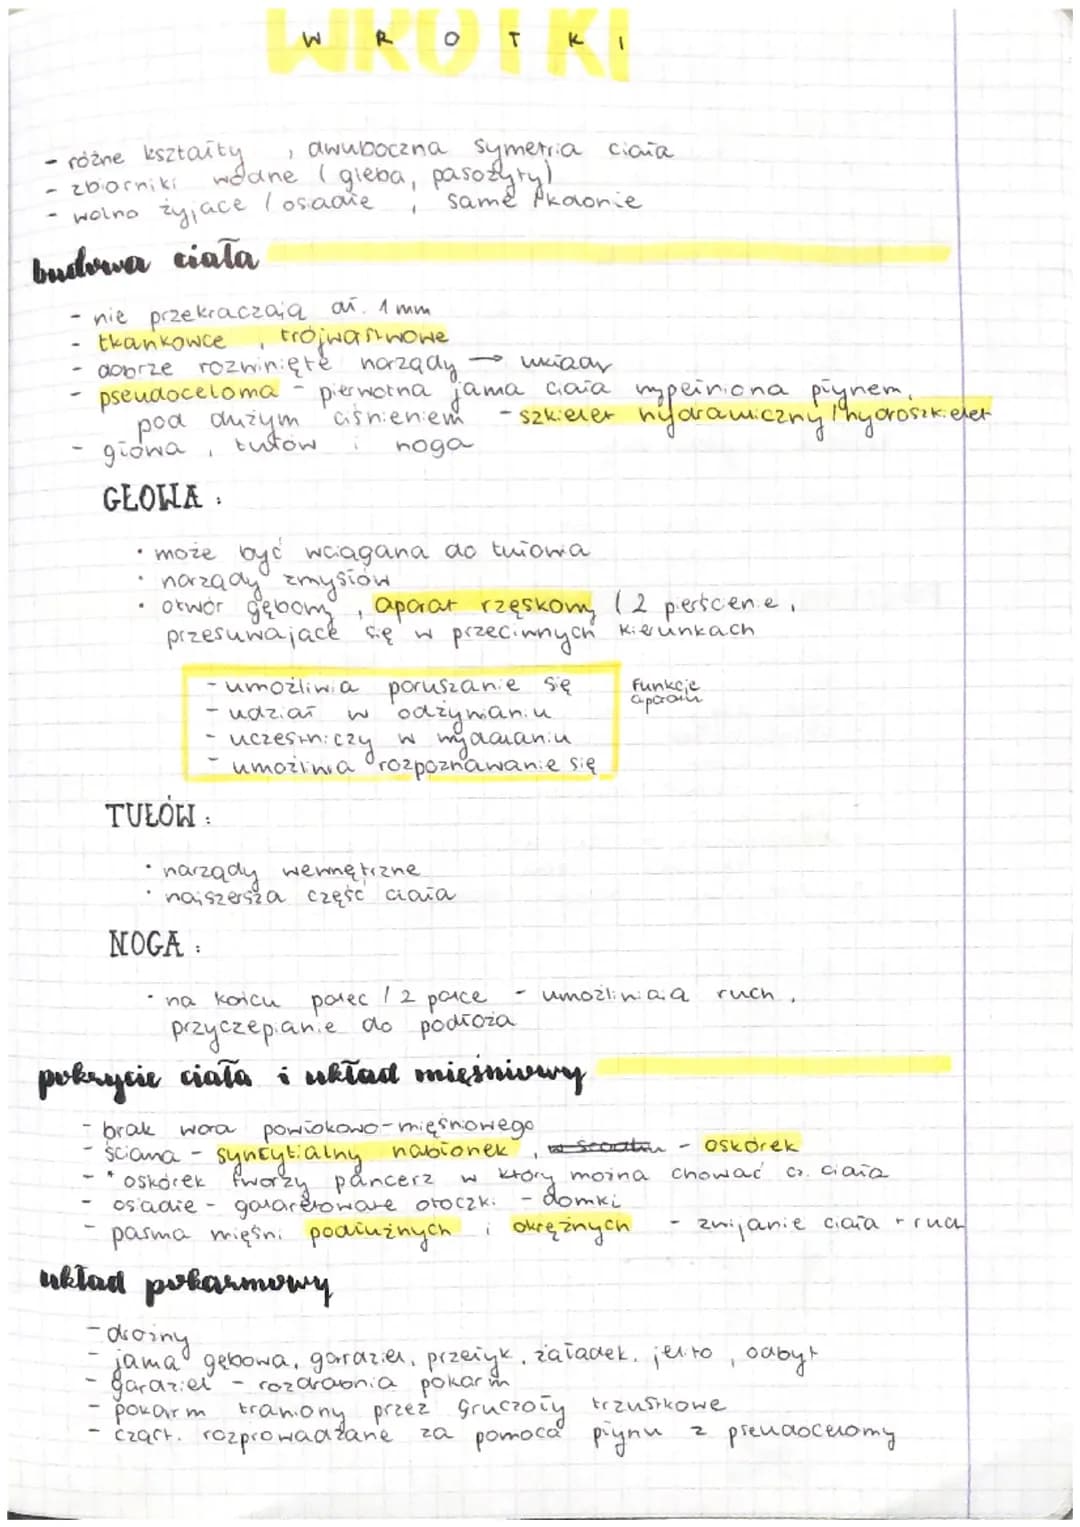 WROTKI
W R O T K I
- różne kształty , dwuboczna symetria ciała
- zbiorniki wodne (gleba, pasożyty)
- wolno żyjące / osiadłe , same
budowa ciała
- nie przekraczają dł. 1 mm
- tkankowce , trójwarstwowe
- dobrze rozwinięte narządy → układy
- pseudoceloma - pierwotna jama ciała wypełniona płynem,
pod dużym ciśnieniem - szkielet hydrauliczny / hydroszkielet
- głowa , tułów i noga
GŁOWA :
• może być wciągana do tułowia
• narządy zmysłów
• otwór gębowy , aparat rzęskowy (2 pierścienie,
przesuwające się w przeciwnych kierunkach
- umożliwia poruszanie się
funkcje
aparatu
- udział w odżywianiu
- uczestniczy w wydalaniu
- umożliwia rozpoznawanie się
TUŁÓW :
• narządy wewnętrzne
• najszersza część ciała
NOGA :
• na końcu palec / 2 palce - umożliwiają ruch ,
przyczepianie do podłoża
pokrycie ciała i układ mięśniowy
- brak wora powłokowo-mięśniowego
- ściana - syncytialny nabłonek , - oskórek
- * oskórek tworzy pancerz w który można chować cz. ciała
- osiadłe - galaretowate otoczki - domki
- pasma mięśni podłużnych i okrężnych - zwijanie ciała + ruch
układ pokarmowy
- drożny
- jama gębowa, gardziel, przełyk, żołądek, jelito , odbyt
- gardziel - rozdrabnia pokarm
- pokarm trawiony przez gruczoły trzustkowe
- cząst. rozprowadzane za pomocą płynu z pseudocelomy